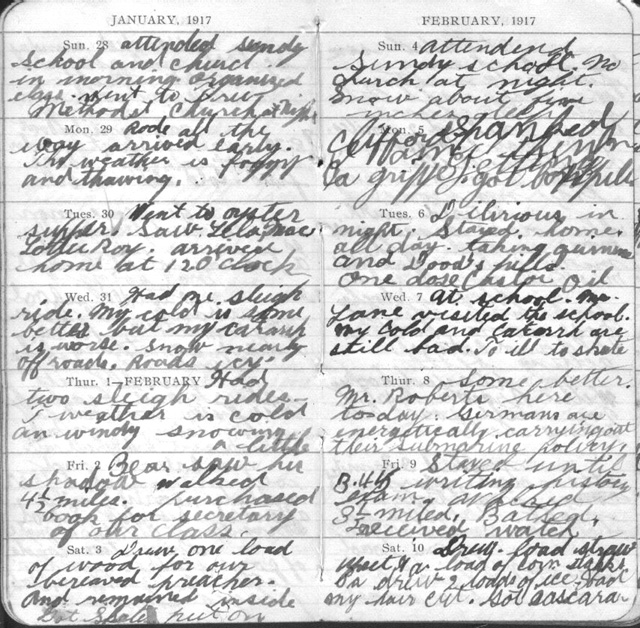 JANUARY, 1917
Sun. 28 attended Sunday
School and Church
in morning Organized
class. went to
Methodist Church at Night
Mon. 29 Rode all the
way arrived early.
The weather is foggy
and thawing.
Tues. 30 Went to oyster
supper. Saw Lela, Mae
Lottie Roy. arrived
home at 12 O clock
Wed. 31 Had one sleigh
ride. My cold is some
better but my
is worse. Snow nearly
off roads. Roads icy.
Thur. 1—FEBRUARY Had
two sleigh rides.
weather is cold
an windy snowing
a little
Fri. 2 Bear saw his
shadow walked
4 1/2 miles. purchased
book for secretary
of our class.
Sat. 3 Drew one load
of wood for our
bereaved preacher.
And remained inside
put on
FEBRUARY, 1917
Sun. 4 attended
Sunday school. No
church at night.
Snow about five
inches deep
Mon. 5 Spanked
Clifford
la grippe. got
Tues. 6 Delirious in
night. Stayed home
all day. taking quinine
and Dood's pills.
One dose Castor Oil
Wed. 7 At school. Mr.
Lane visited the school.
My cold and Catarrh are
still bad. To ill to skate
Thur. 8 Some better.
Mr. Roberts here
today. Germans are
energetically carrying out
their submarine policy.
Fri. 9 Stayed until
writing history
exam. walked
3 1/2 miles. Bathed.
Received watch
Sat. 10 Drew load straw
upset & a load of corn stalks.
Pa drew 2 loads of ice. had
my hair cut. Got cascara